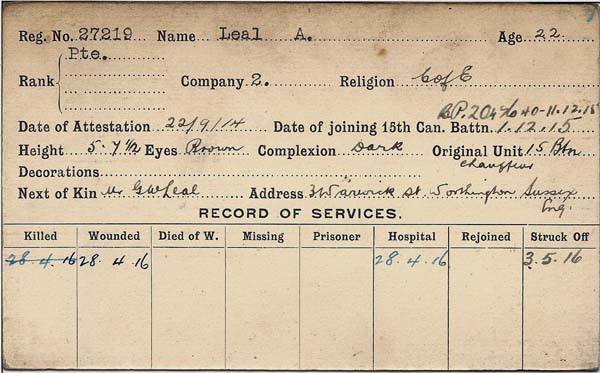 Reg. No. 27219 Name Leal A. Age 22
Rank Pte. Company 2. Religion C of E
B.P. 20 40-11.12.15
Date of Attestation 22/9/14 Date of joining 15th Can. Battn. 1.12.15
Height 5-7 1/2 Eyes Brown Complexion Dark Original Unit 15 Btn
Decorations Chauffeur
Next of Kin Mr G W Leal Address 3 Warwick St. Worthington Sussex
Eng.
RECORD OF SERVICES.
Killed Wounded Died of W. Missing Prisoner Hospital Rejoined Struck Off
28.4.16 28.4.16 28.4.16 3.5.16